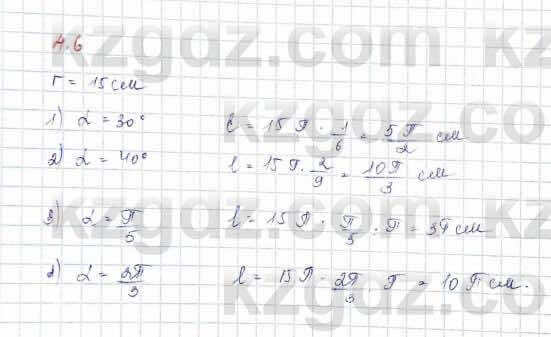 4.6
r = 15 см
1) α = 30° ℓ = 15π · 1/6 = 5π/2 см
2) α = 40° ℓ = 15π · 2/9 = 10π/3 см
3) α = π/5 ℓ = 15π · π/5 · π = 3π см
4) α = 2π/3 ℓ = 15π · 2π/3 π = 10π см.
kzgdz.com